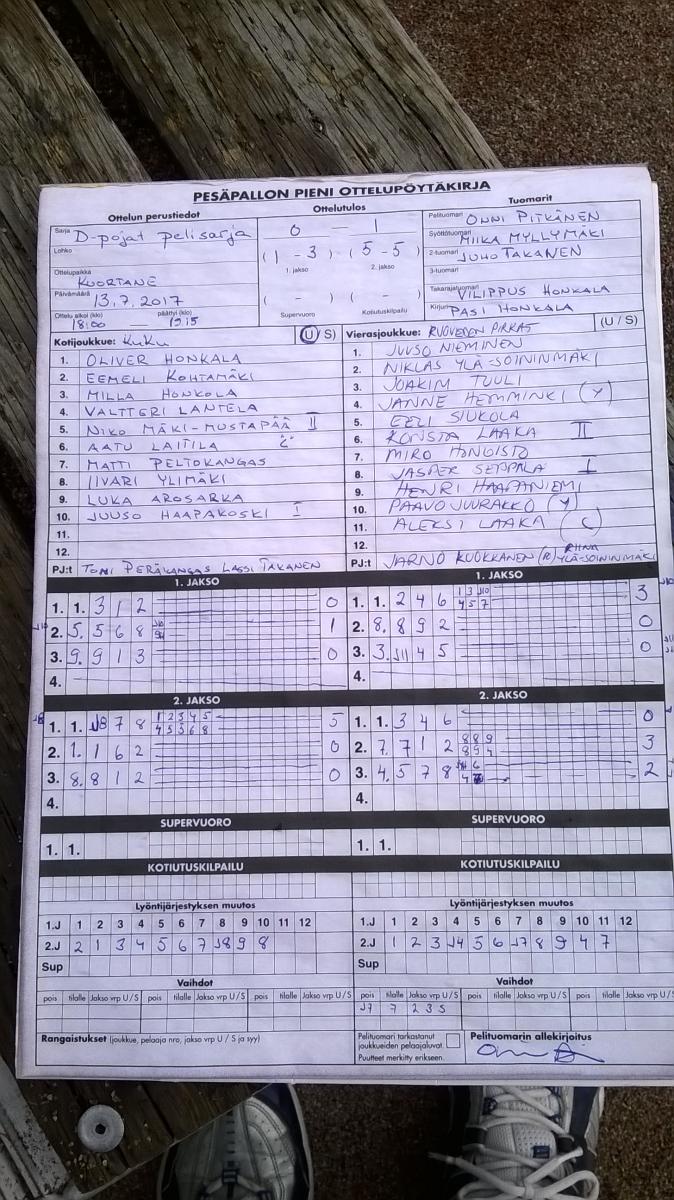 PESÄPALLON PIENI OTTELUPÖYTÄKIRJA
Ottelun perustiedot
Ottelutulos
Tuomarit
Sarja D-pojat pelisarja
Lohko
Ottelupaikka KUORTANE
Päivämäärä 13.7.2017
Ottelu alkoi (klo) päättyi (klo)
18:00 — 19:15
0 — 1
(1 - 3) (5 - 5)
1. jakso 2. jakso
( - ) ( - )
Supervuoro Kotiutuskilpailu
Pelituomari ONNI PITKÄNEN
Syöttötuomari MIIKA MYLLYMÄKI
2-tuomari JUHO TAKANEN
3-tuomari
Takarajatuomari VILIPPUS HONKALA
Kirjuri PASI HONKALA
Kotijoukkue: KuKu (U/S)
1. OLIVER HONKALA
2. EEMELI KOHTAMÄKI
3. MILLA HONKOLA
4. VALTTERI LANTELA
5. NIKO MÄKI-MUSTAPÄÄ II
6. AATU LAITILA C
7. MATTI PELTOKANGAS
8. IIVARI YLIMÄKI
9. LUKA AROSARKA
10. JUUSO HAAPAKOSKI I
11.
12.
PJ:t TOMI PERÄKANGAS LASSI TAKANEN
Vierasjoukkue: RUOVEDEN PIRKAS (U/S)
1. JUUSO NIEMINEN
2. NIKLAS YLÄ-SOININMÄKI
3. JOAKIM TUULI
4. JANNE HEMMINKI (Y)
5. EELI SIUKOLA
6. KONSTA LAAKA II
7. MIRO HONGISTO
8. JASPER SEPPÄLÄ I
9. HENRI HAAPANIEMI
10. PAAVO JUURAKKO (Y)
11. ALEKSI LAAKA (C)
12.
PJ:t JARNO KUOKKANEN (R) RIINA YLÄ-SOININMÄKI
1. JAKSO
1. 1. 3 1 2 0
2. 5. 5 6 8 1
3. 9. 9 1 3 0
4.
1. JAKSO
1. 1. 2 4 6 1 3 J10 3
4 5 7
2. 8. 8 9 2 0
3. 3. J11 4 5 0
4.
2. JAKSO
1. 1. J8 7 8 1 2 3 4 5 5
4 5 5 6 8
2. 1. 1 6 2 0
3. 8. 8 1 2 0
4.
2. JAKSO
1. 1. 3 4 6 0
2. 7. 7 1 2 8 8 9 3
8 9 4
3. 4. 5 7 8 2
4.
SUPERVUORO
1. 1.
SUPERVUORO
1. 1.
KOTIUTUSKILPAILU
KOTIUTUSKILPAILU
Lyöntijärjestyksen muutos
1.J 1 2 3 4 5 6 7 8 9 10 11 12
2.J 2 1 3 4 5 6 7 J8 9 8
Sup
Lyöntijärjestyksen muutos
1.J 1 2 3 4 5 6 7 8 9 10 11 12
2.J 1 2 3 J4 5 6 J7 8 9 4 7
Sup
Vaihdot
pois tilalle Jakso vrp U/S pois tilalle Jakso vrp U/S pois tilalle Jakso vrp U/S
Vaihdot
pois tilalle Jakso vrp U/S pois tilalle Jakso vrp U/S pois tilalle Jakso vrp U/S
J7 7 2 3 S
Rangaistukset (joukkue, pelaaja nro, jakso vrp U / S ja syy)
Pelituomari tarkastanut
joukkueiden pelaajaluvat.
Puutteet merkitty erikseen.
Pelituomarin allekirjoitus